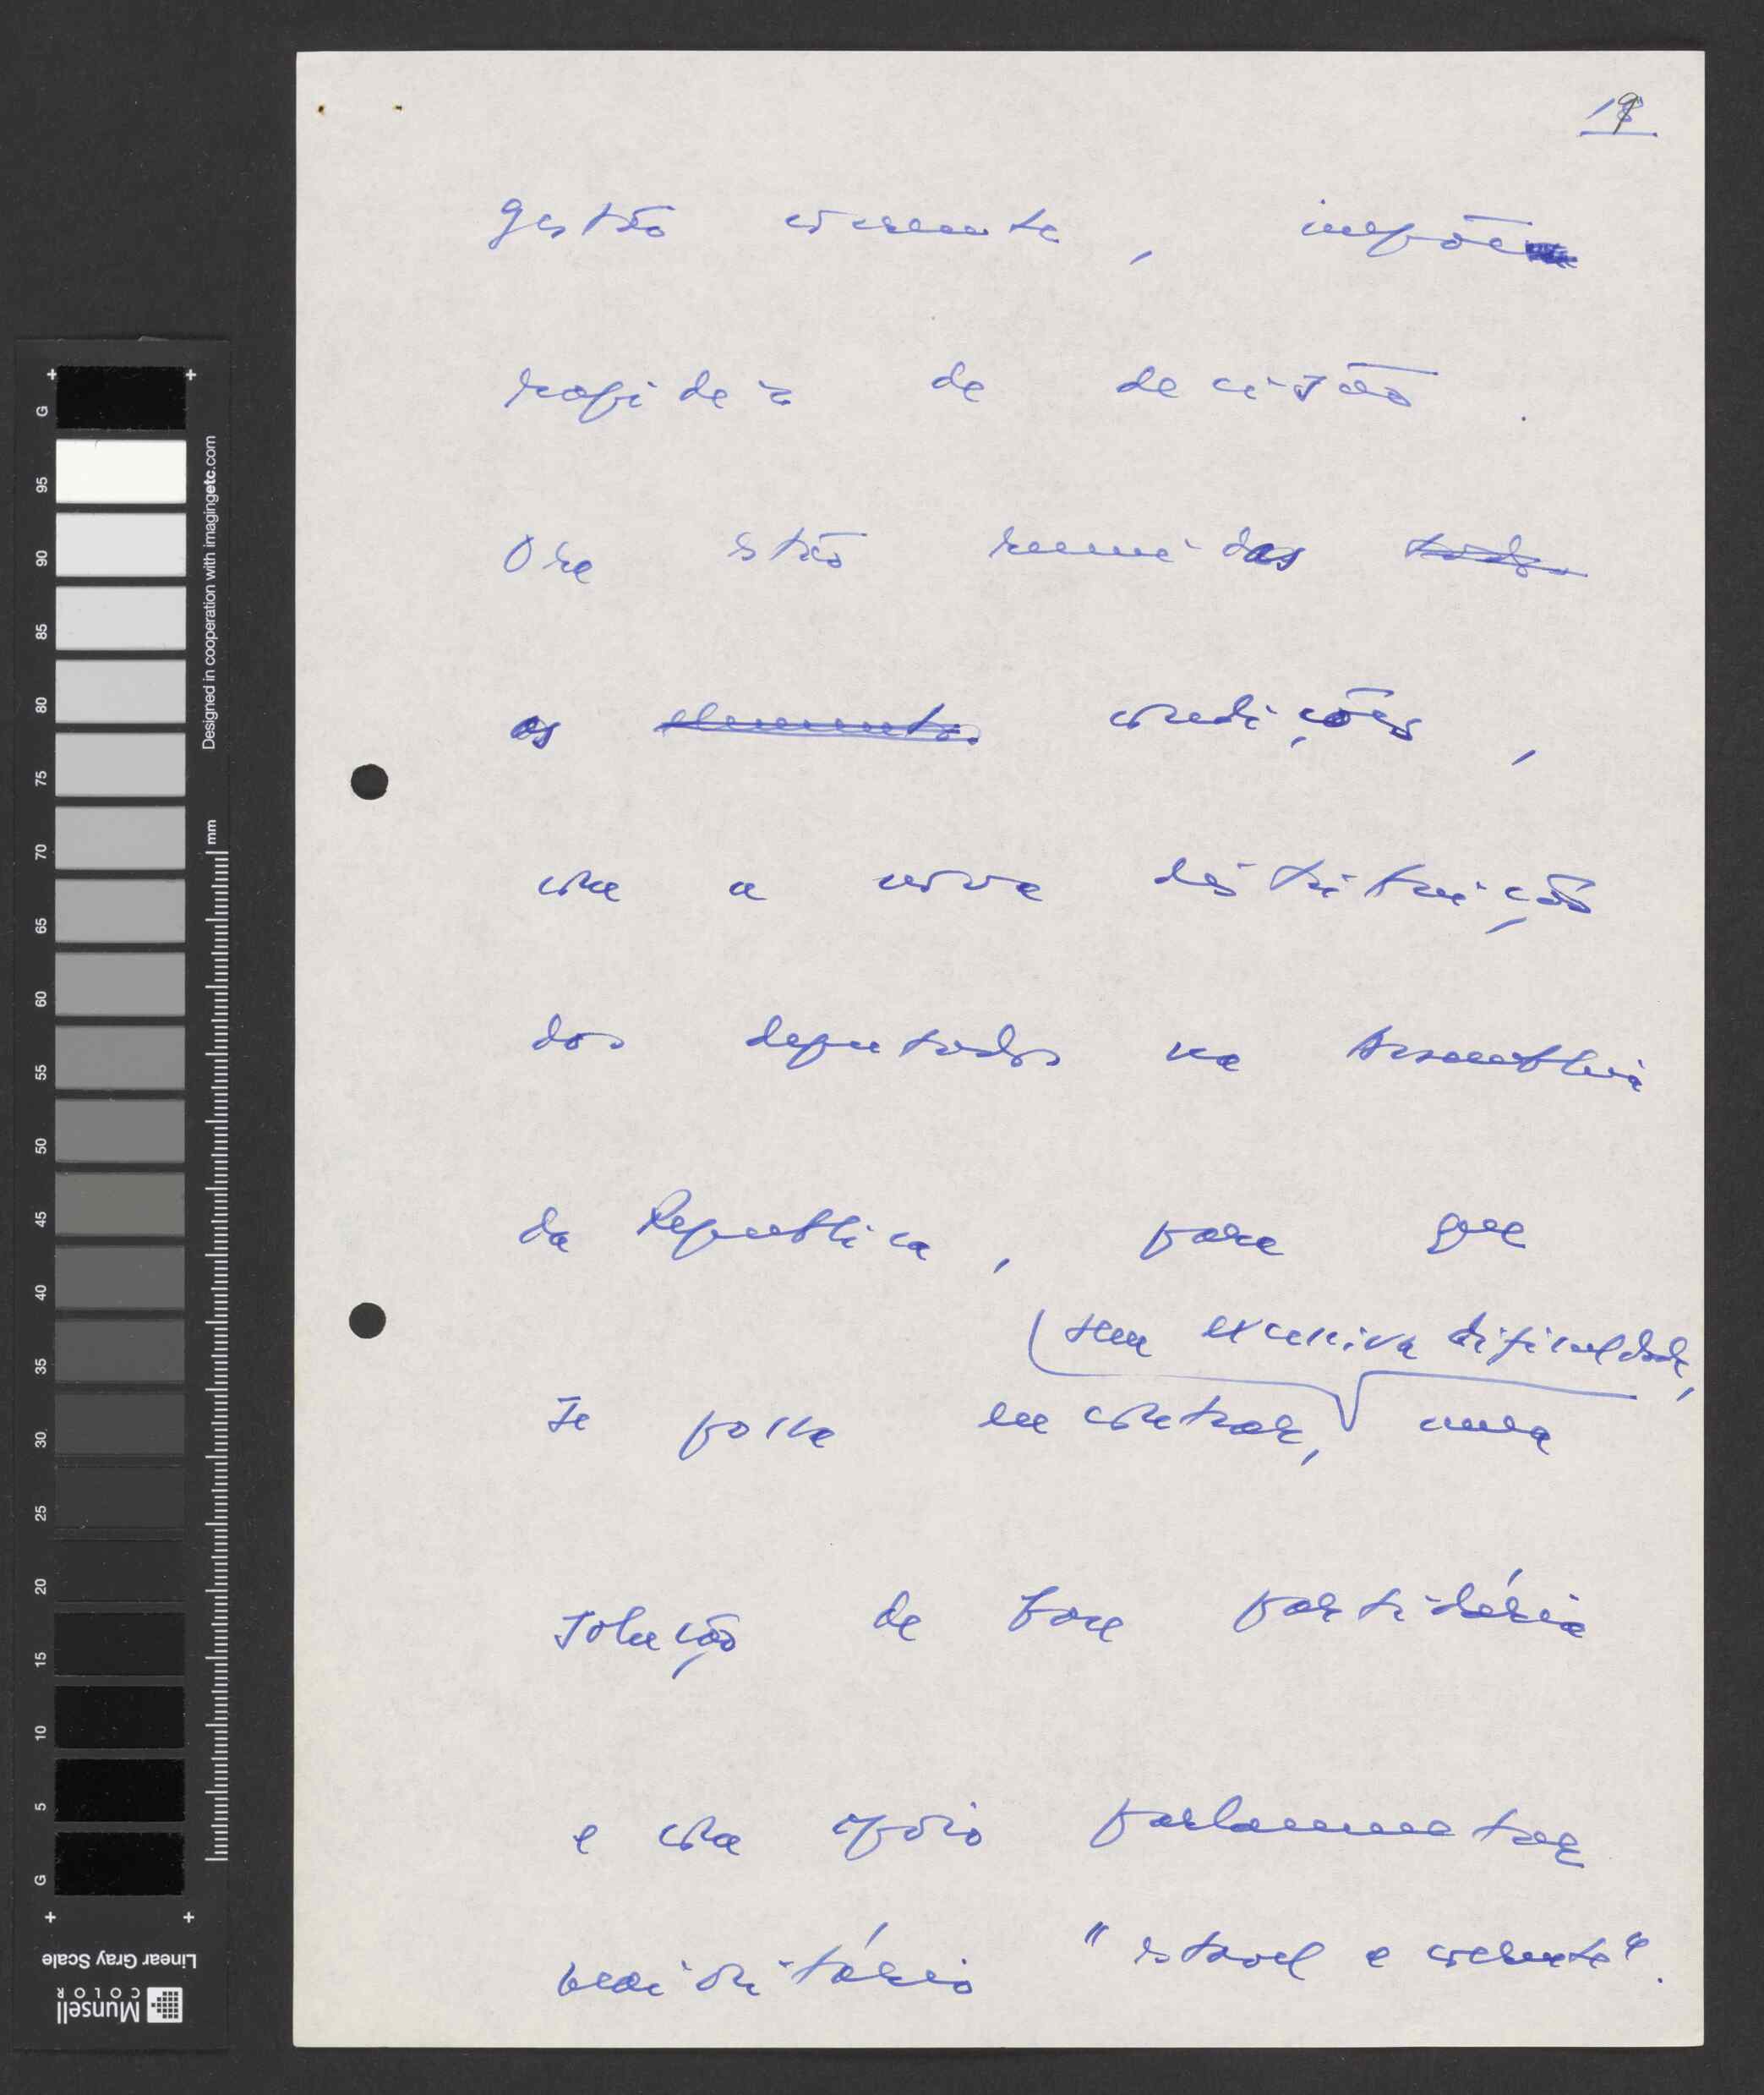 19
gestão corrente, impõe
rapidez de decisão.
Ora estão reunidas todos
as elementos condições,
com a nova distribuição
dos deputados na Assembleia
da Republica, para que
(sem excessiva dificuldade,
se possa encontrar, uma
solução de base partidária
e com apoio parlamentar
maioritário "estavel e coerente".
G
95
90
85
80
75
70
65
60
55
50
45
40
35
30
25
20
15
10
5
G
Designed in cooperation with imagingetc.com
mm
Linear Gray Scale
Munsell
COLOR